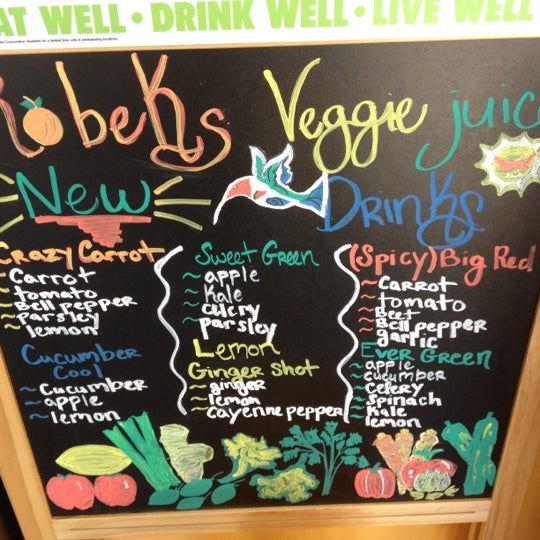 AT WELL • DRINK WELL • LIVE WELL
RobeKs Veggie juic
New Drinks
Crazy Carrot
~ Carrot
~ tomato
~ Bell pepper
~ parsley
~ lemon
Cucumber
Cool
~ Cucumber
~ apple
~ lemon
Sweet Green
~ apple
~ Kale
~ celery
~ parsley
Lemon
Ginger Shot
~ ginger
~ lemon
~ cayenne pepper
(Spicy) Big Red
~ Carrot
~ tomato
~ Beet
~ Bell pepper
~ garlic
Ever Green
~ apple
~ cucumber
~ celery
~ spinach
~ Kale
lemon